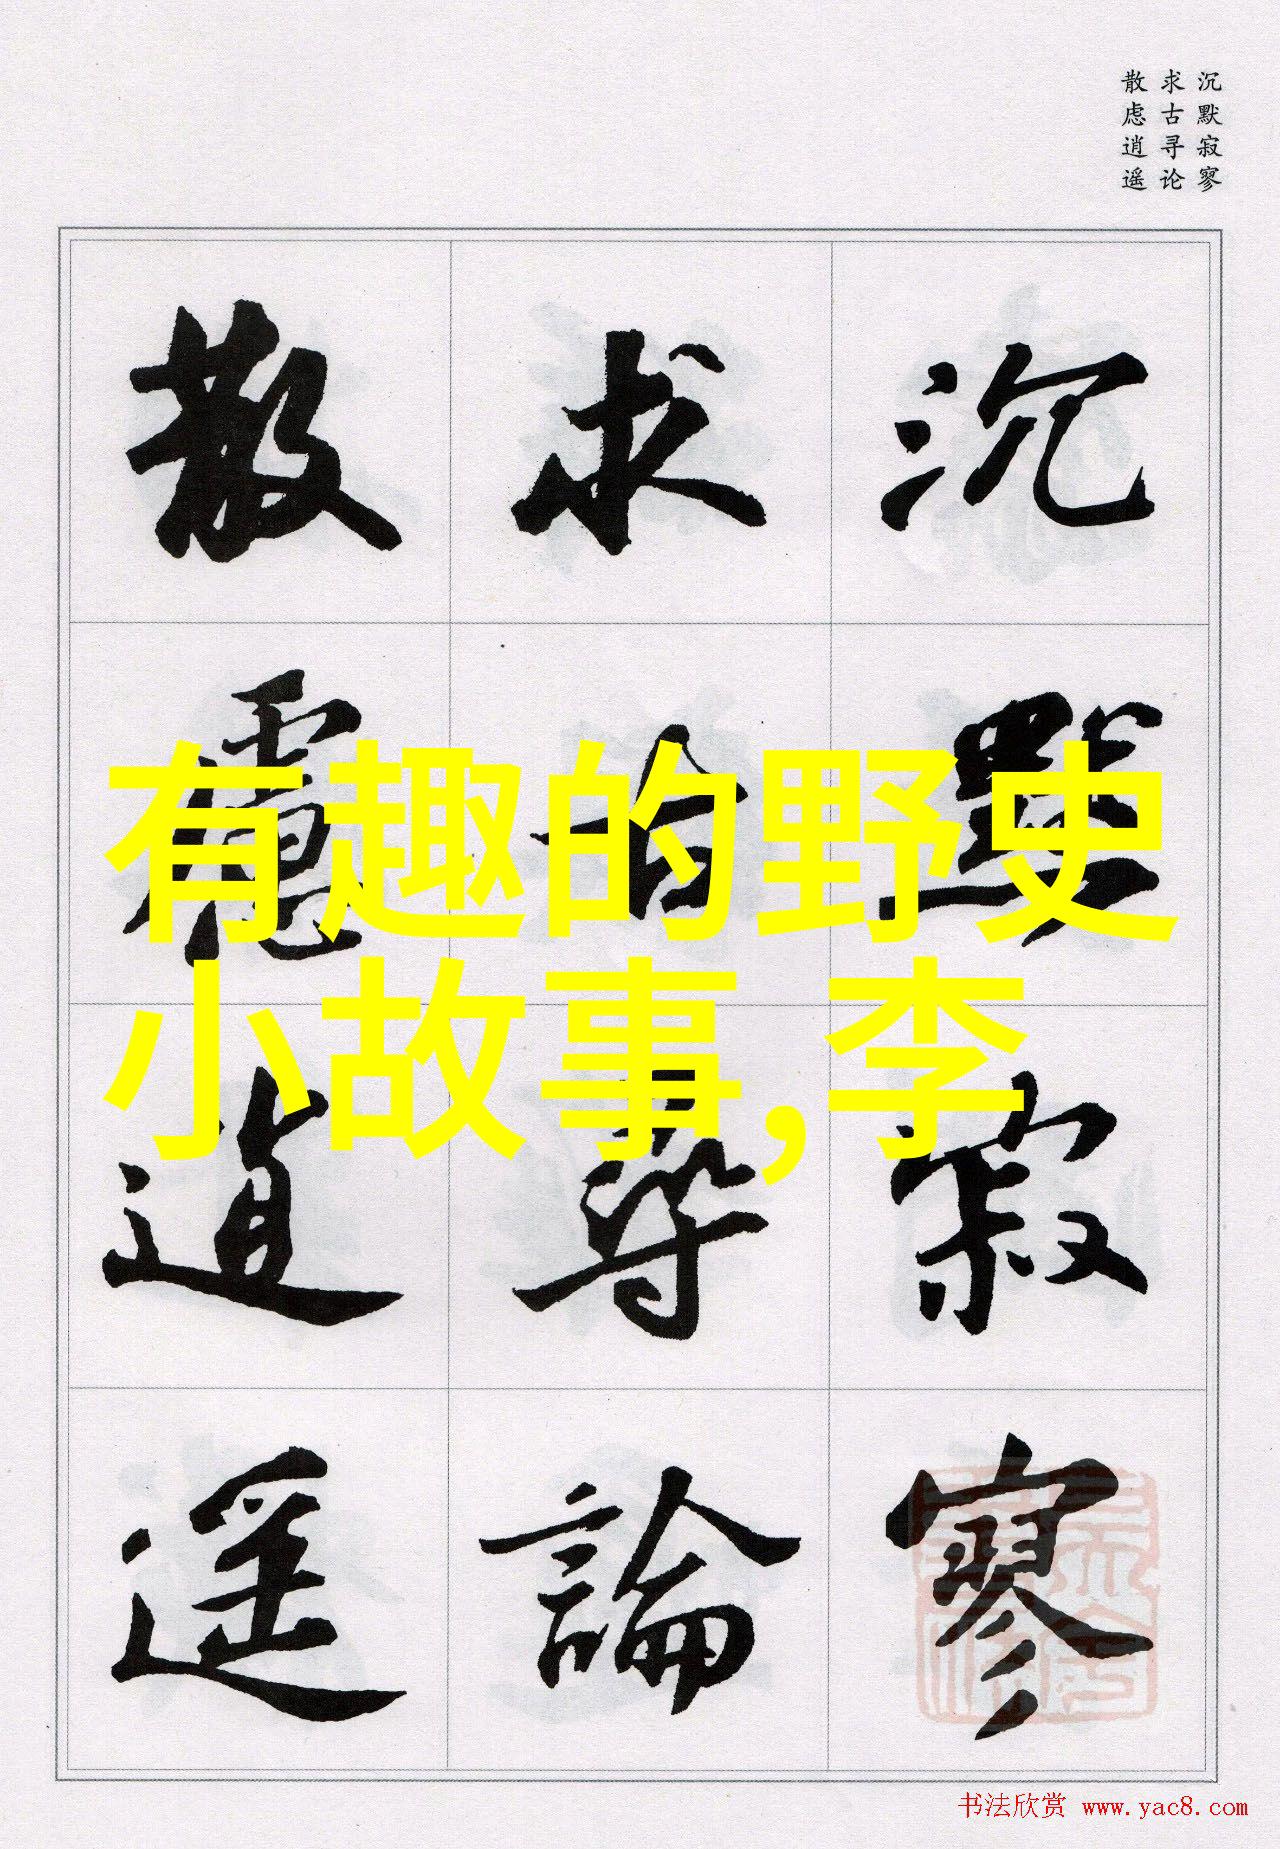 沉默寂寥
求古寻论
散虑逍遥
沉默寂寥
求古尋論
散慮逍遥
有趣的野史
小故事,李
书法欣赏 www.yac8.com